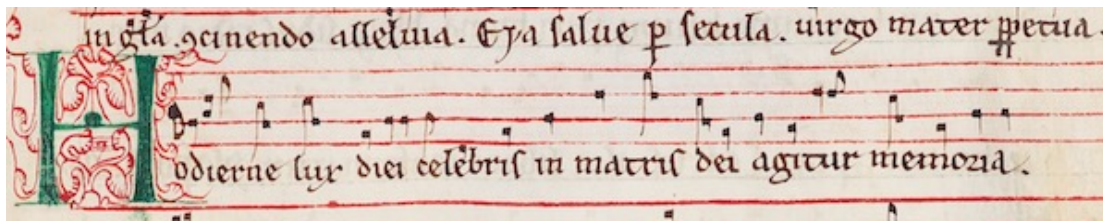 in gła. ꝯcinendo allełuia. Eya salue ꝑ secula. uirgo mater ꝑpetua.
Hodierne lux diei celebris in matris dei agitur memoria.